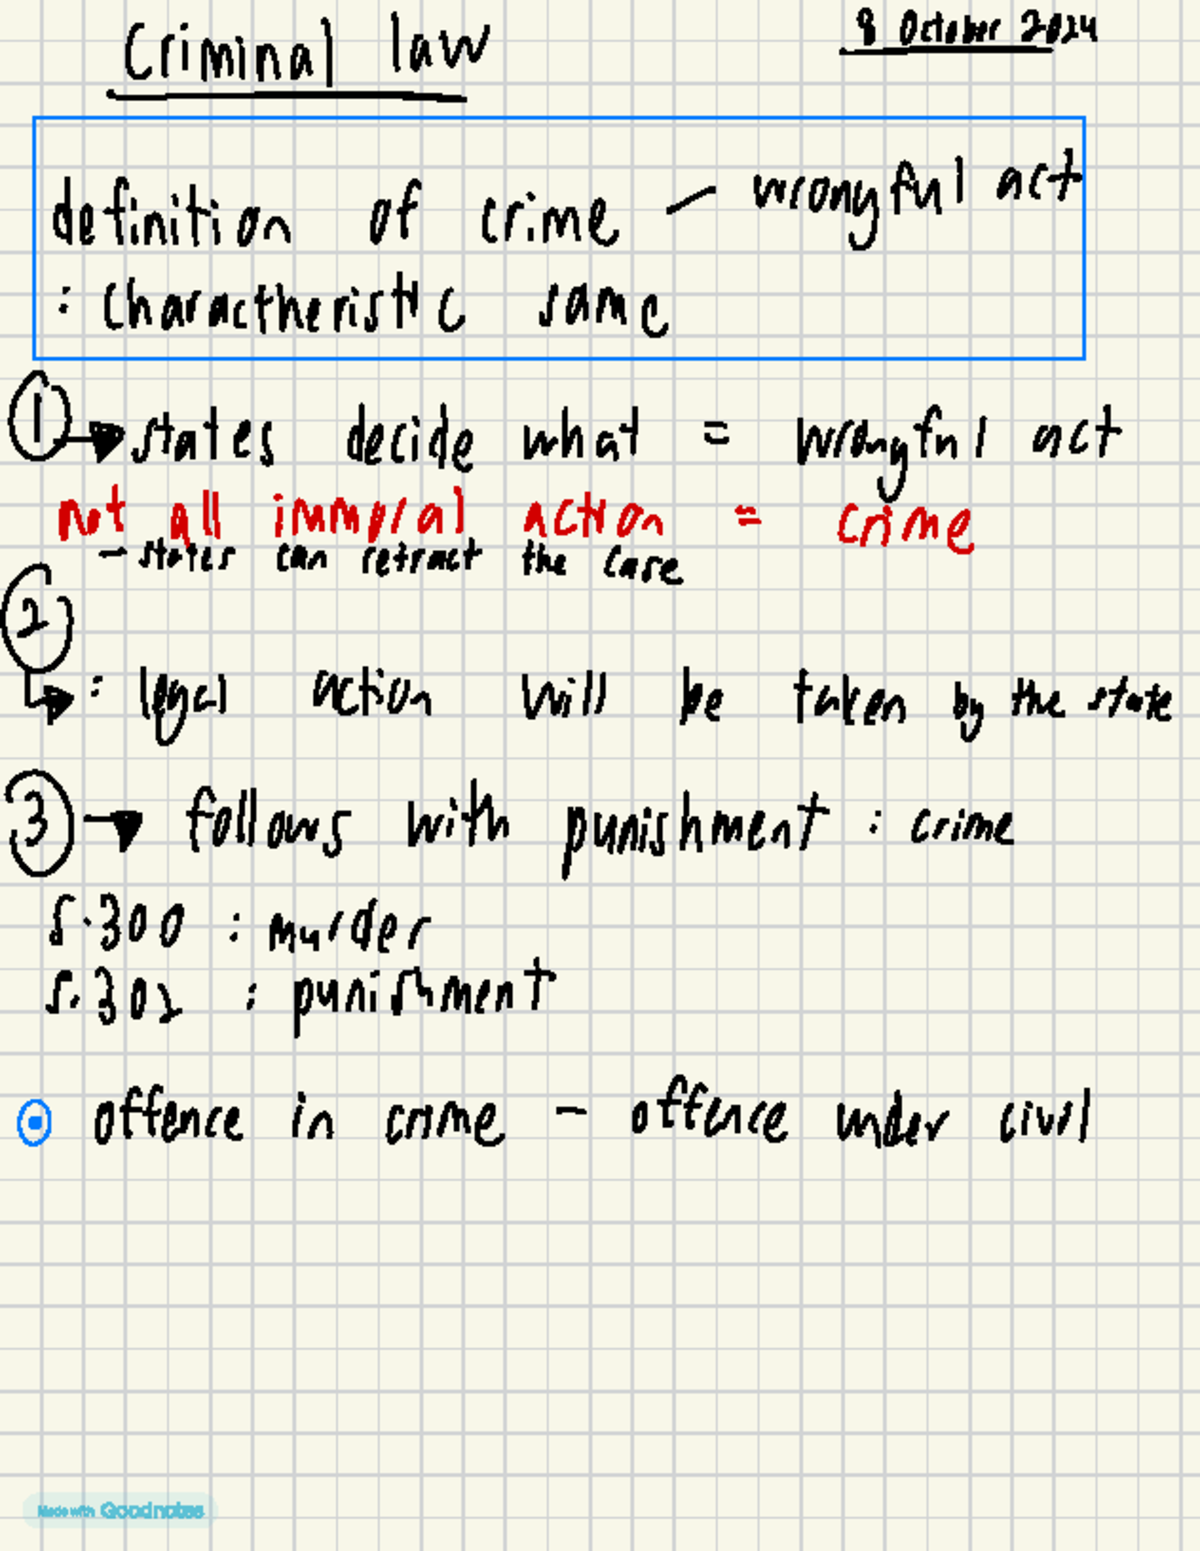 Criminal law
8 October 2024
definition of crime – wrongful act
: charactheristic same
1 → states decide what = wrongful act
not all immoral action = crime
– states can retract the case
2
↳ : legal action will be taken by the state
3 → follows with punishment : crime
S.300 : murder
S.302 : punishment
offence in crime – offence under civil
Made with Goodnotes